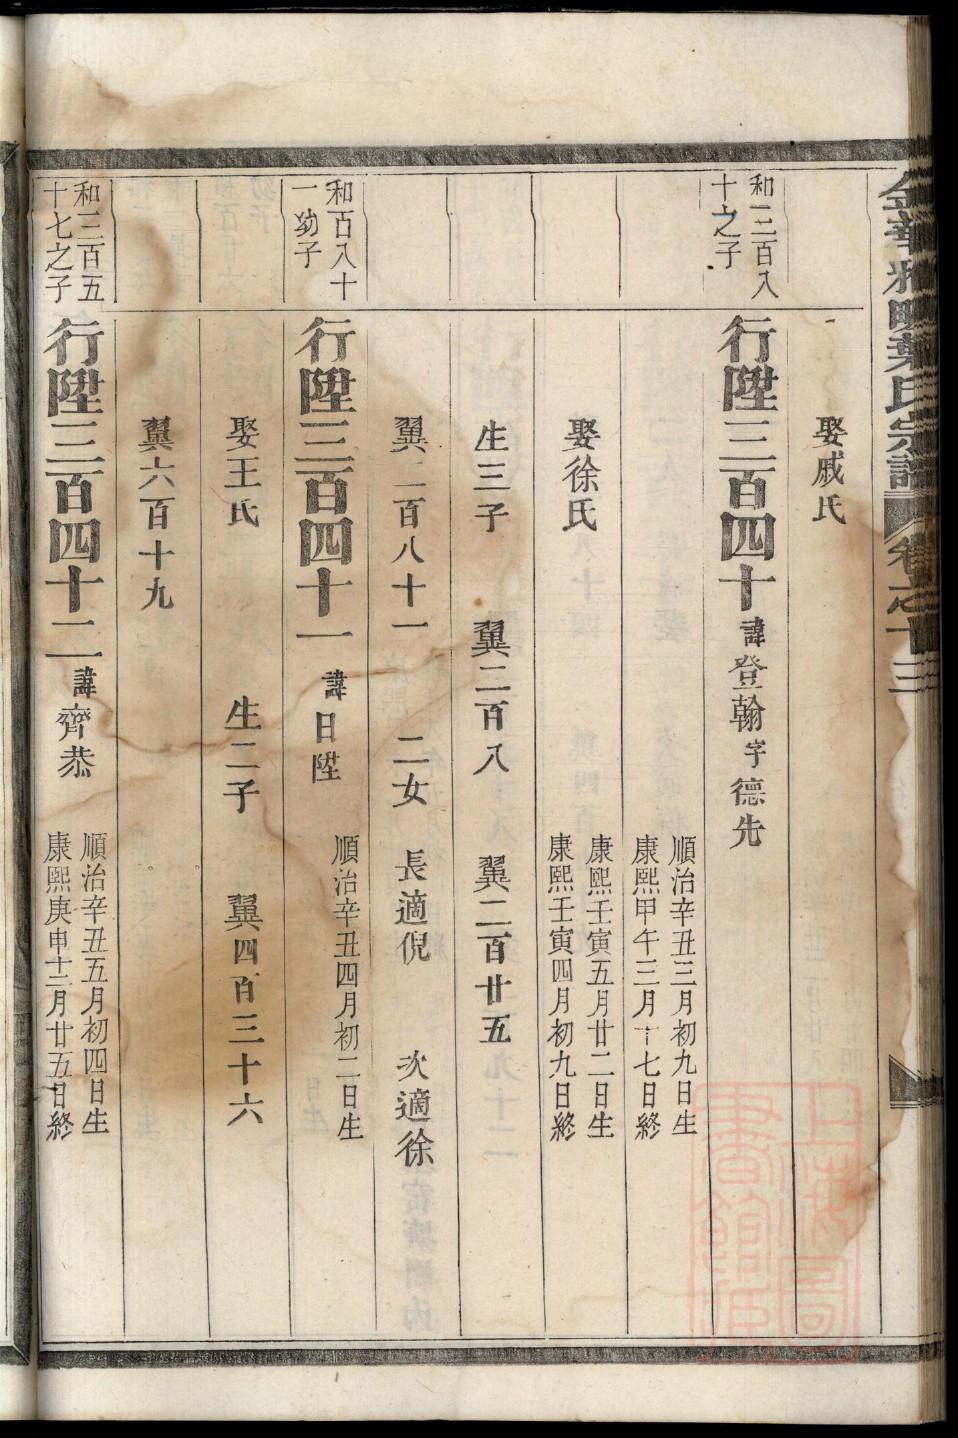 金華雅畈葉氏宗譜 卷之十三
娶戚氏
和三百八
十之子
行陞三百四十 諱登翰 字德先
順治辛丑三月初九日生
康熙甲午三月十七日終
娶徐氏
康熙壬寅五月廿二日生
康熙壬寅四月初九日終
生三子 翼二百八 翼二百廿五
翼二百八十一 二女 長適倪 次適徐
和百八十
一幼子
行陞三百四十一 諱日陞
順治辛丑四月初二日生
娶王氏 生二子 翼四百三十六
翼六百十九
和三百五
十七之子
行陞三百四十二 諱齊恭
順治辛丑五月初四日生
康熙庚申十二月廿五日終
上海圖書館藏